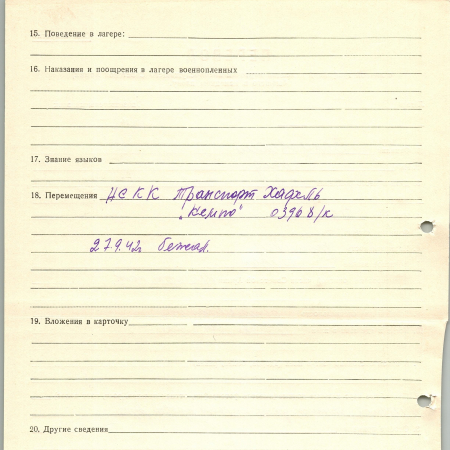 15. Поведение в лагере:
16. Наказания и поощрения в лагере военнопленных
17. Знание языков
18. Перемещения НСКК Транспорт Хадель
"Кемпо" 03908/к
27.9.42г бежал.
19. Вложения в карточку
20. Другие сведения